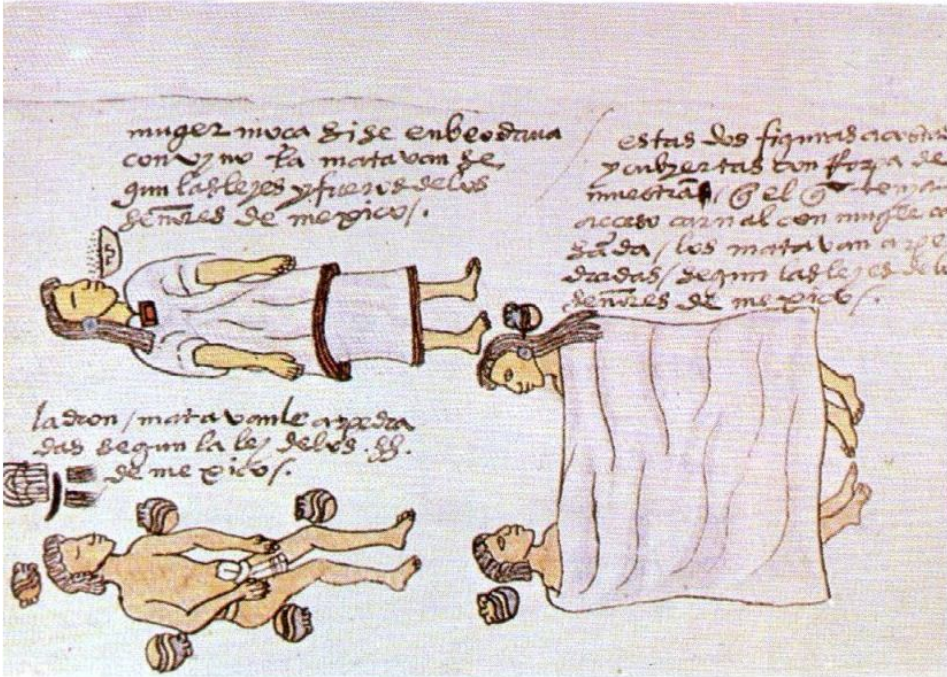 muger moça si se enbeodava
con vino la matavan se
gun las leyes y fueros de los
señores de mexico /.
estas dos figuras acosta
y cubiertas con Ropa de
muestran / q̃ el q̃ tenya
acceso carnal con muger ca
sada / los matavan a pe
dradas / segun las leyes de lo
señores de mexico /.
ladron / matavanle a pedra
das segun la ley de los .ss.
de mexico /.